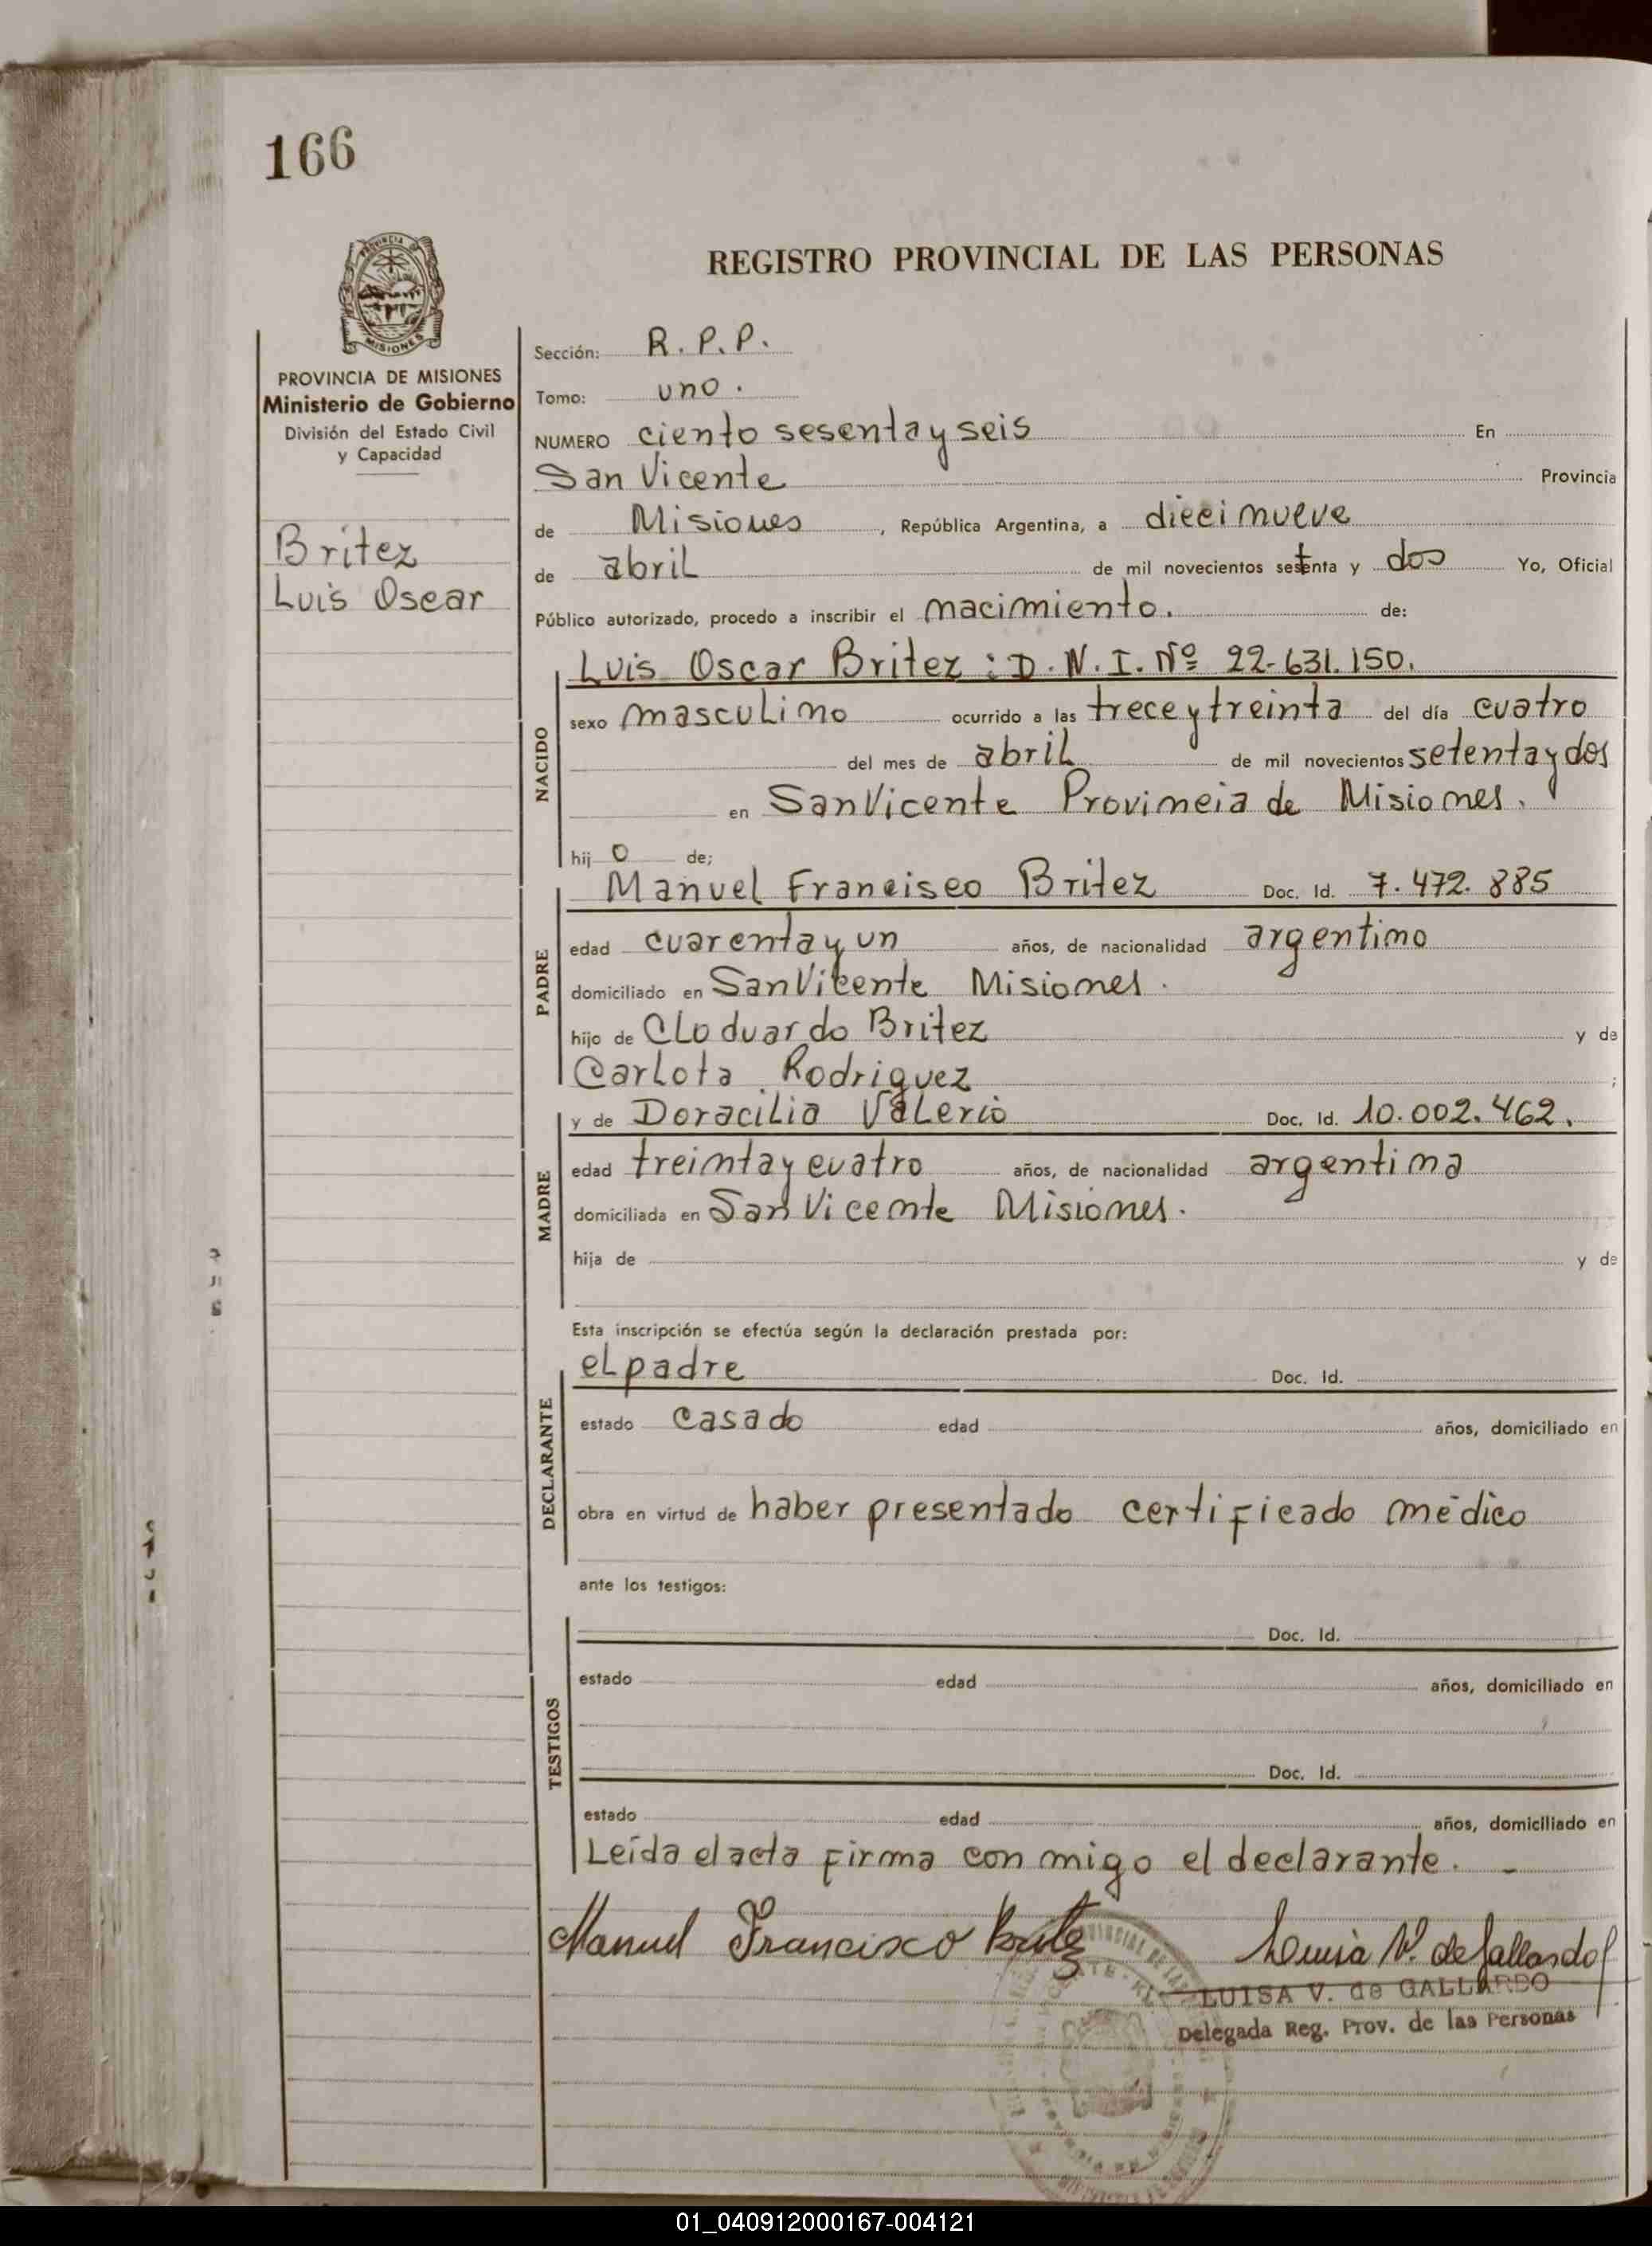 166
PROVINCIA DE
MISIONES
REGISTRO PROVINCIAL DE LAS PERSONAS
PROVINCIA DE MISIONES
Ministerio de Gobierno
División del Estado Civil
y Capacidad
Britez
Luis Oscar
Sección: R. P. P.
Tomo: uno.
NUMERO ciento sesenta y seis En
San Vicente Provincia
de Misiones, República Argentina, a diecinueve
de abril de mil novecientos setenta y dos Yo, Oficial
Público autorizado, procedo a inscribir el nacimiento. de:
NACIDO
Luis Oscar Britez: D. N. I. Nº 22-631.150.
sexo masculino ocurrido a las trece y treinta del día cuatro
del mes de abril de mil novecientos setenta y dos
en San Vicente Provincia de Misiones.
hijo de;
PADRE
Manuel Francisco Britez Doc. Id. 7.472.885
edad cuarenta y un años, de nacionalidad argentino
domiciliado en San Vicente Misiones.
hijo de Cloduardo Britez y de
Carlota Rodriguez ;
MADRE
y de Doracilia Valerio Doc. Id. 10.002.462.
edad treinta y cuatro años, de nacionalidad argentina
domiciliada en San Vicente Misiones.
hija de y de
Esta inscripción se efectúa según la declaración prestada por:
DECLARANTE
el padre Doc. Id.
estado casado edad años, domiciliado en
obra en virtud de haber presentado certificado médico
ante los testigos:
TESTIGOS
Doc. Id.
estado edad años, domiciliado en
Doc. Id.
estado edad años, domiciliado en
Leída el acta firma con migo el declarante. -
Manuel Francisco Britez Luisa V. de Gallardo
LUISA V. de GALLARDO
Delegada Reg. Prov. de las Personas
01_040912000167-004121